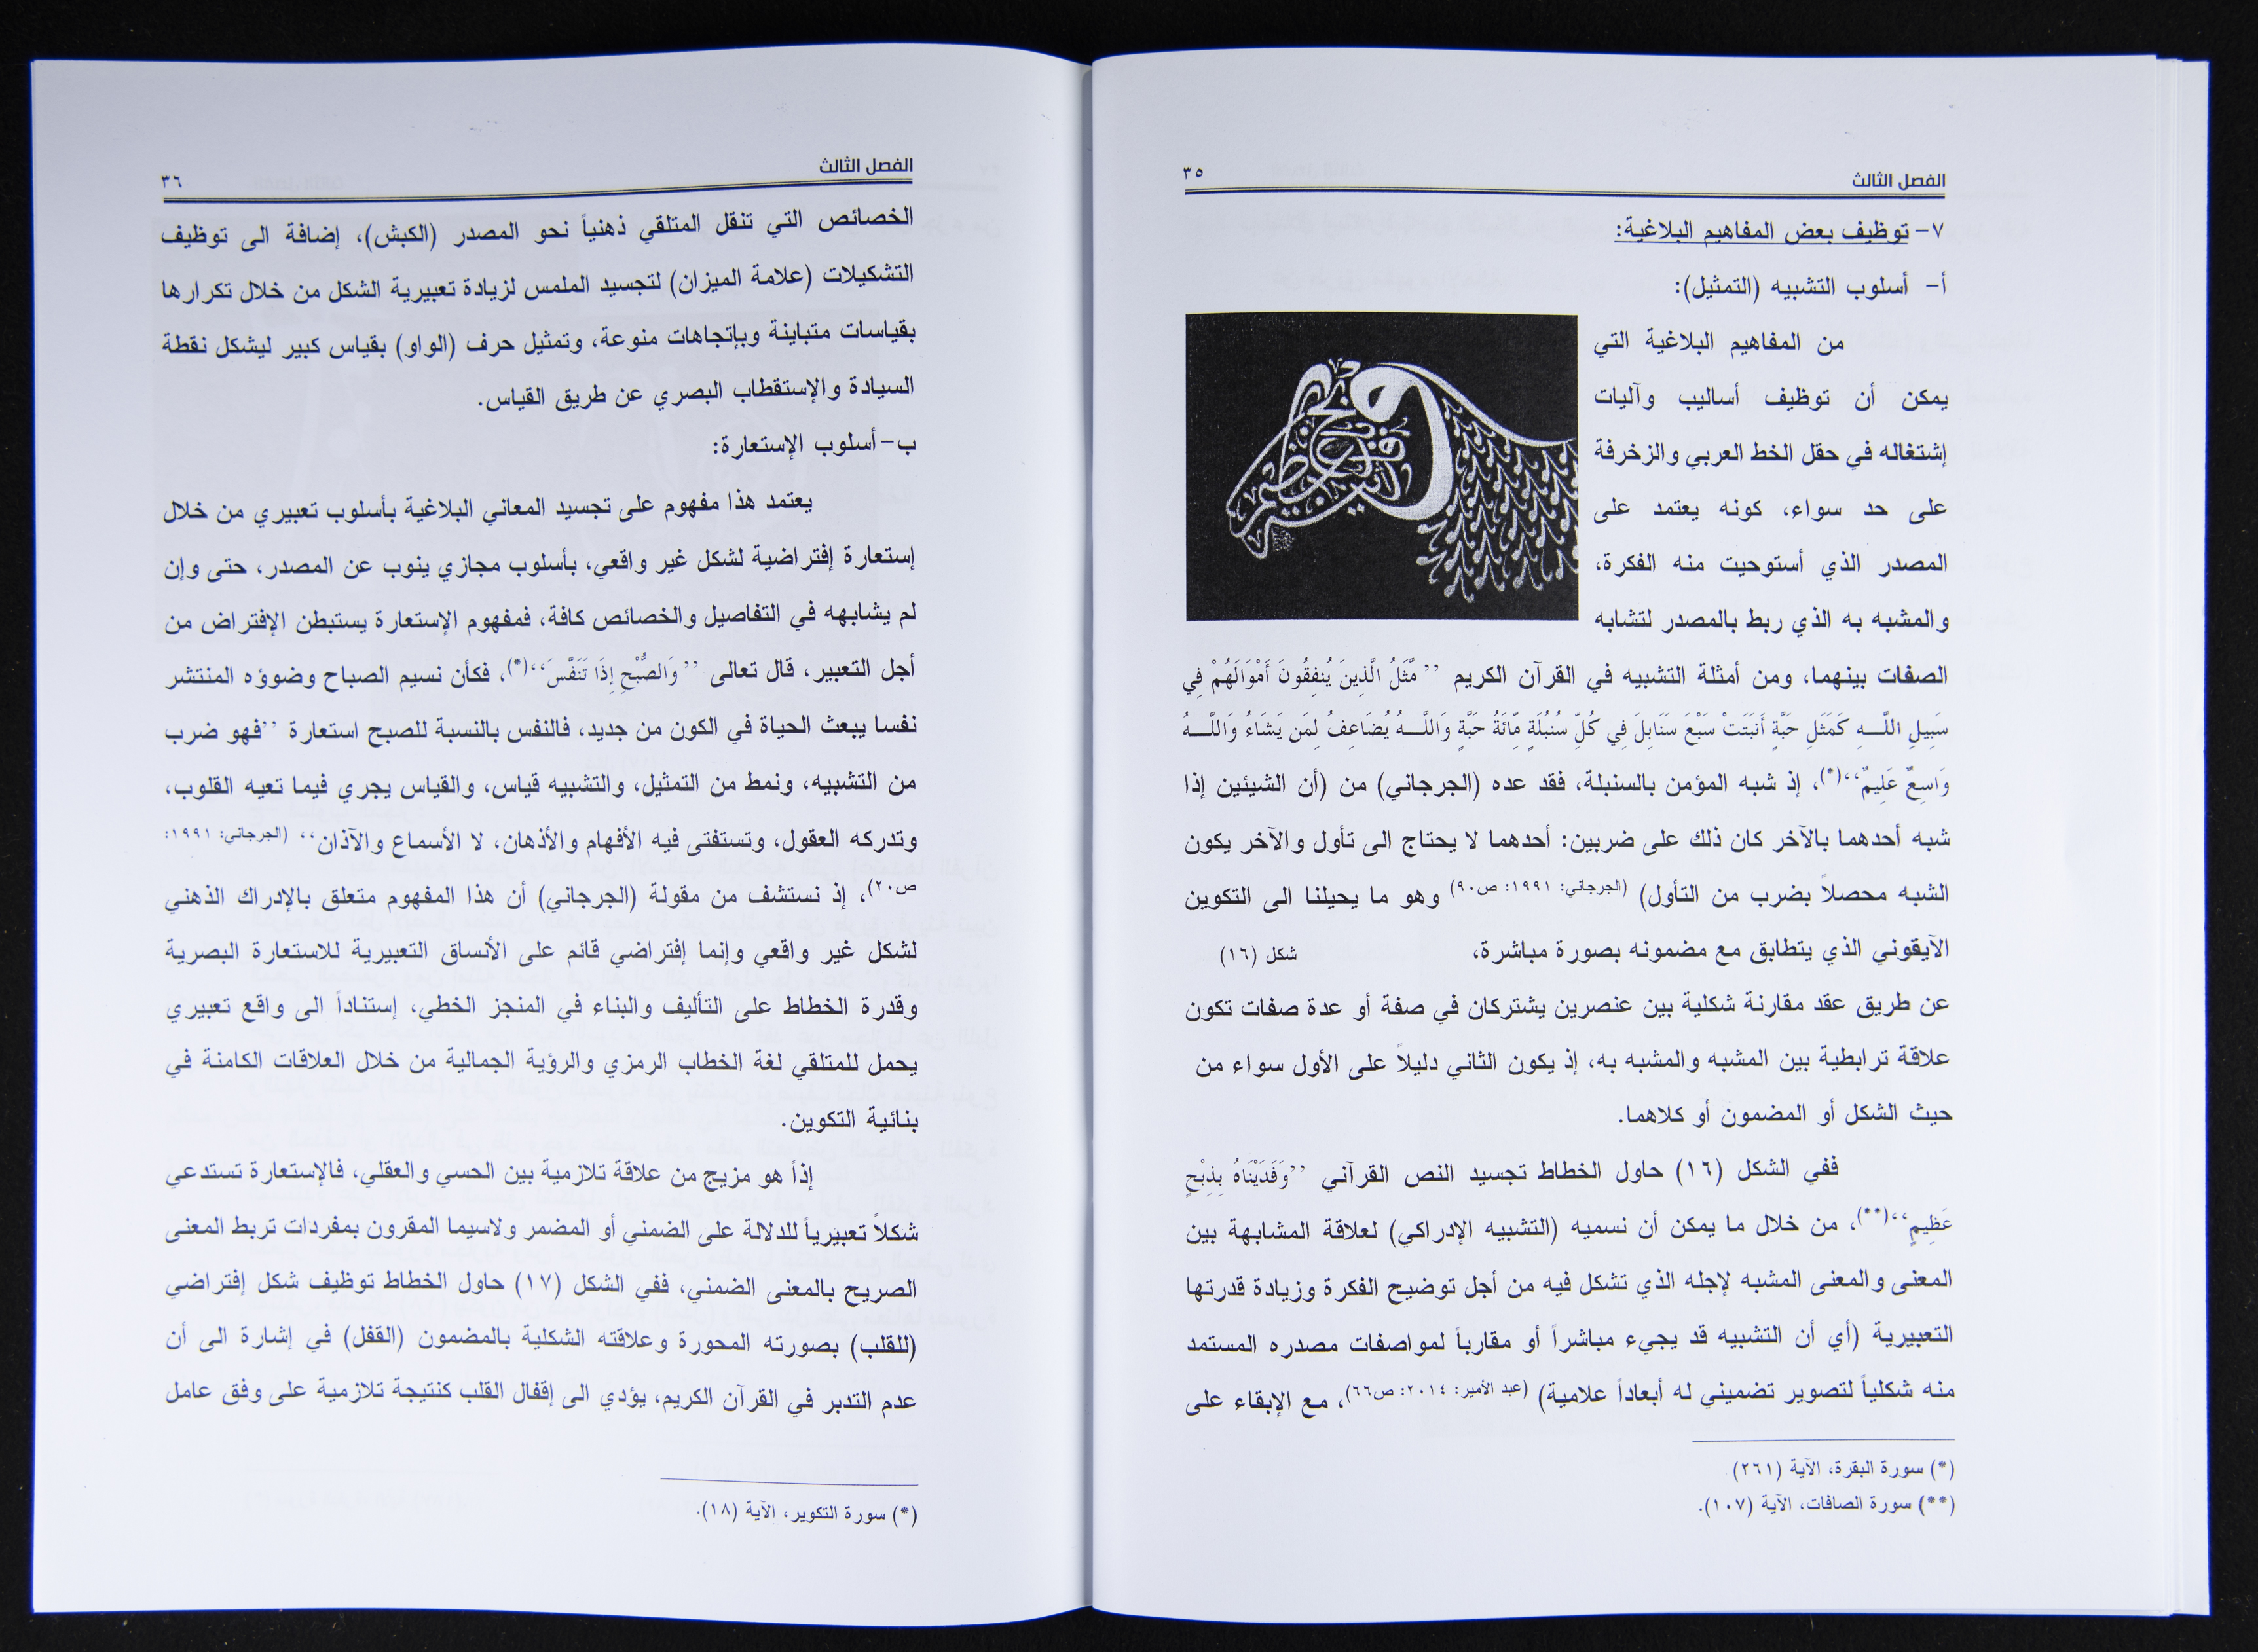 الفصل الثالث
٣٥
٧- توظيف بعض المفاهيم البلاغية:
أ- أسلوب التشبيه (التمثيل):
من المفاهيم البلاغية التي
يمكن أن توظيف أساليب وآليات
إشتغاله في حقل الخط العربي والزخرفة
على حد سواء، كونه يعتمد على
المصدر الذي أستوحيت منه الفكرة،
والمشبه به الذي ربط بالمصدر لتشابه
الصفات بينهما، ومن أمثلة التشبيه في القرآن الكريم ’’مَّثَلُ الَّذِينَ يُنفِقُونَ أَمْوَالَهُمْ فِي
سَبِيلِ اللَّـهِ كَمَثَلِ حَبَّةٍ أَنبَتَتْ سَبْعَ سَنَابِلَ فِي كُلِّ سُنبُلَةٍ مِّائَةُ حَبَّةٍ وَاللَّـهُ يُضَاعِفُ لِمَن يَشَاءُ وَاللَّـهُ
وَاسِعٌ عَلِيمٌ‘‘(*)، إذ شبه المؤمن بالسنبلة، فقد عده (الجرجاني) من (أن الشيئين إذا
شبه أحدهما بالآخر كان ذلك على ضربين: أحدهما لا يحتاج الى تأول والآخر يكون
الشبه محصلاً بضرب من التأول) (الجرجاني: ١٩٩١: ص٩٠) وهو ما يحيلنا الى التكوين
الآيقوني الذي يتطابق مع مضمونه بصورة مباشرة،
شكل (١٦)
عن طريق عقد مقارنة شكلية بين عنصرين يشتركان في صفة أو عدة صفات تكون
علاقة ترابطية بين المشبه والمشبه به، إذ يكون الثاني دليلاً على الأول سواء من
حيث الشكل أو المضمون أو كلاهما.
ففي الشكل (١٦) حاول الخطاط تجسيد النص القرآني ’’وَفَدَيْنَاهُ بِذِبْحٍ
عَظِيمٍ‘‘(**)، من خلال ما يمكن أن نسميه (التشبيه الإدراكي) لعلاقة المشابهة بين
المعنى والمعنى المشبه لإجله الذي تشكل فيه من أجل توضيح الفكرة وزيادة قدرتها
التعبيرية (أي أن التشبيه قد يجيء مباشراً أو مقارباً لمواصفات مصدره المستمد
منه شكلياً لتصوير تضميني له أبعاداً علامية) (عبد الأمير: ٢٠١٤: ص٦٦)، مع الإبقاء على
(*) سورة البقرة، الآية (٢٦١)
(**) سورة الصافات، الآية (١٠٧).
الفصل الثالث
٣٦
الخصائص التي تنقل المتلقي ذهنياً نحو المصدر (الكبش)، إضافة الى توظيف
التشكيلات (علامة الميزان) لتجسيد الملمس لزيادة تعبيرية الشكل من خلال تكرارها
بقياسات متباينة وبإتجاهات منوعة، وتمثيل حرف (الواو) بقياس كبير ليشكل نقطة
السيادة والإستقطاب البصري عن طريق القياس.
ب- أسلوب الإستعارة:
يعتمد هذا مفهوم على تجسيد المعاني البلاغية بأسلوب تعبيري من خلال
إستعارة إفتراضية لشكل غير واقعي، بأسلوب مجازي ينوب عن المصدر، حتى وإن
لم يشابهه في التفاصيل والخصائص كافة، فمفهوم الإستعارة يستبطن الإفتراض من
أجل التعبير، قال تعالى ’’وَالصُّبْحِ إِذَا تَنَفَّسَ‘‘(*)، فكأن نسيم الصباح وضوؤه المنتشر
نفسا يبعث الحياة في الكون من جديد، فالنفس بالنسبة للصبح استعارة ’’فهو ضرب
من التشبيه، ونمط من التمثيل، والتشبيه قياس، والقياس يجري فيما تعيه القلوب،
وتدركه العقول، وتستفتى فيه الأفهام والأذهان، لا الأسماع والآذان‘‘ (الجرجاني: ١٩٩١:
ص٢٠)، إذ نستشف من مقولة (الجرجاني) أن هذا المفهوم متعلق بالإدراك الذهني
لشكل غير واقعي وإنما إفتراضي قائم على الأنساق التعبيرية للاستعارة البصرية
وقدرة الخطاط على التأليف والبناء في المنجز الخطي، إستناداً الى واقع تعبيري
يحمل للمتلقي لغة الخطاب الرمزي والرؤية الجمالية من خلال العلاقات الكامنة في
بنائية التكوين.
إذاً هو مزيج من علاقة تلازمية بين الحسي والعقلي، فالإستعارة تستدعي
شكلاً تعبيرياً للدلالة على الضمني أو المضمر ولاسيما المقرون بمفردات تربط المعنى
الصريح بالمعنى الضمني، ففي الشكل (١٧) حاول الخطاط توظيف شكل إفتراضي
(للقلب) بصورته المحورة وعلاقته الشكلية بالمضمون (القفل) في إشارة الى أن
عدم التدبر في القرآن الكريم، يؤدي الى إقفال القلب كنتيجة تلازمية على وفق عامل
(*) سورة التكوير، الآية (١٨).